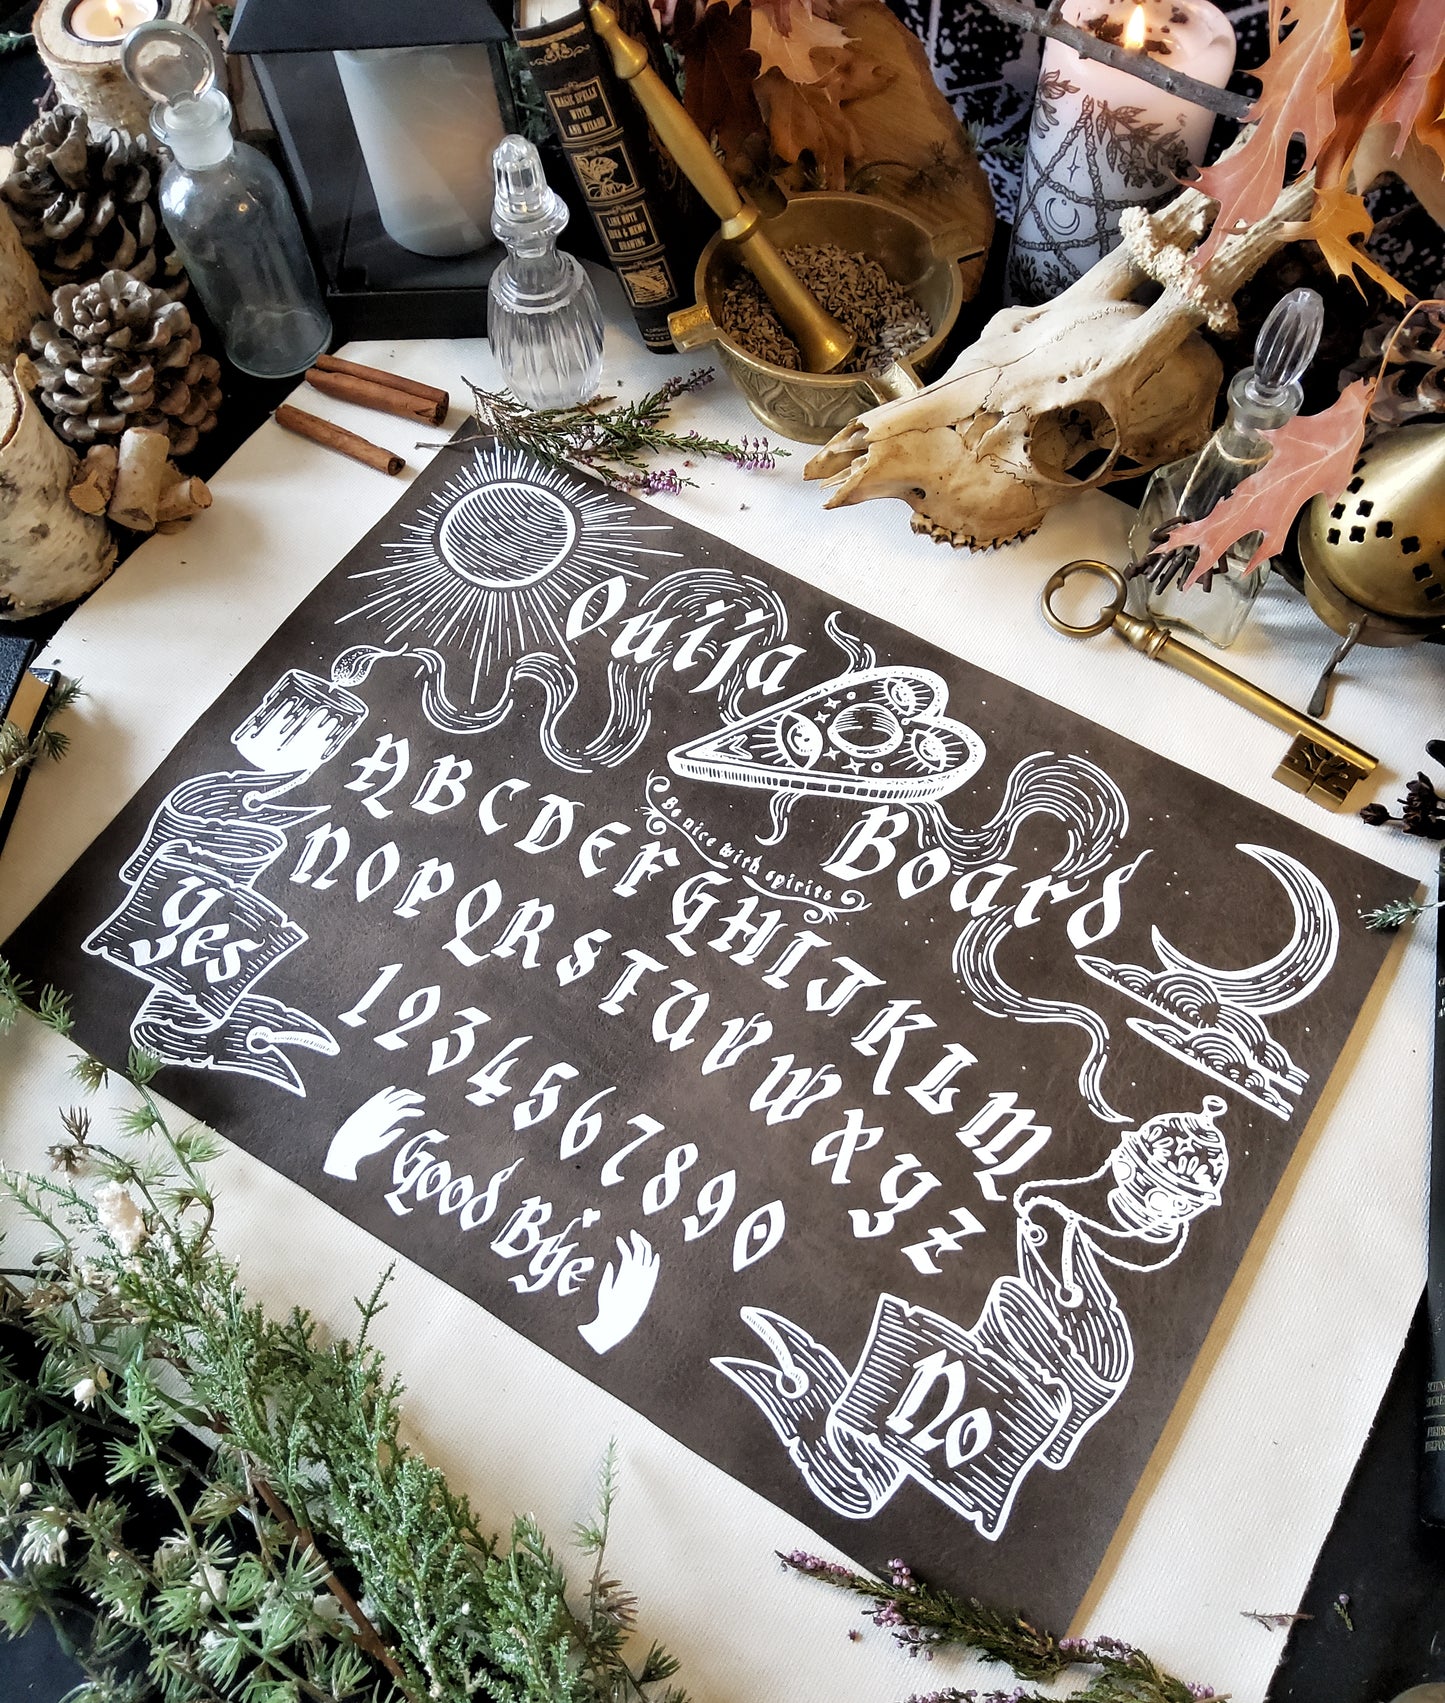 MAGIC SPELLS
WITCH
AND WIZARD
LINE NOTE
IDEA & MEMO
DRAWING
Ouija
Board
Be nice with spirits
ABCDEFGHIJKLM
NOPQRSTUVWXYZ
1234567890
Yes
Good Bye
No